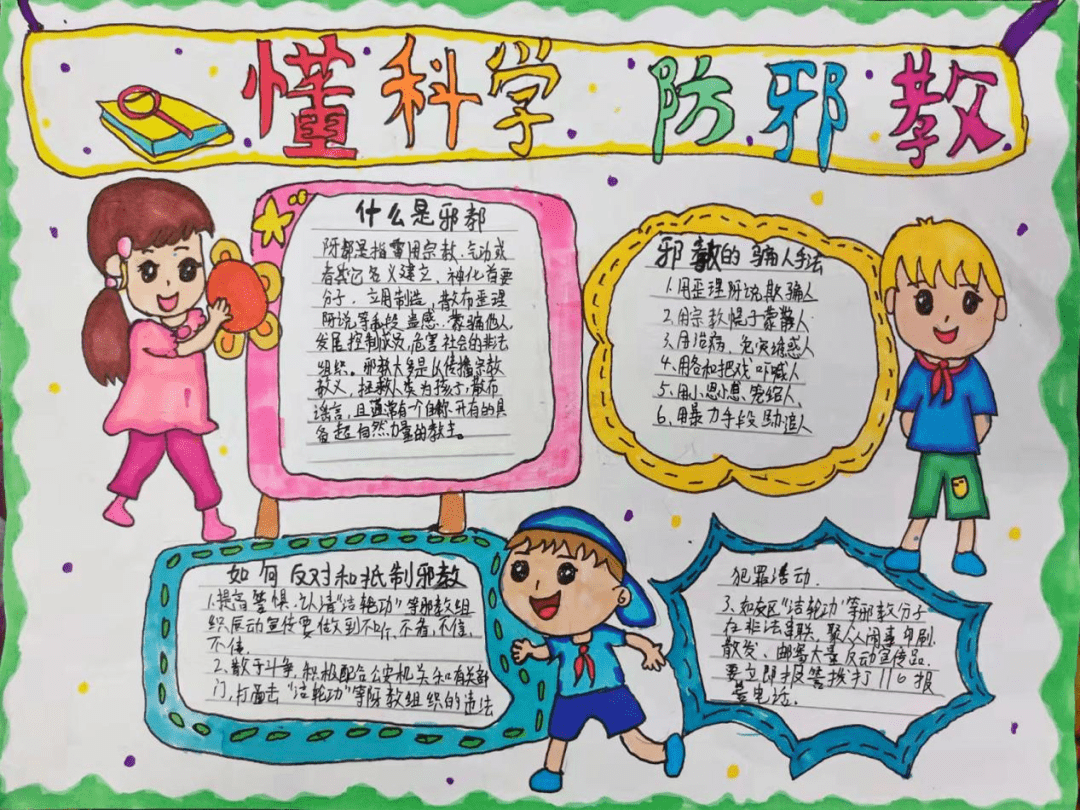 懂科学 防邪教
什么是邪教
邪教是指冒用宗教、气功或
者其它名义建立、神化首要
分子,利用制造,散布歪理
邪说等手段蛊惑、蒙骗他人,
发展控制成员,危害社会的非法
组织。邪教大多是以传播宗教
教义,拯救人类为孩子,散布
谣言,且通常有一个自称开有的具
备超自然力量的教主。
邪教的骗人手法
1.用歪理邪说欺骗人
2.用宗教幌子蒙
3.用治病、免灾诱惑人
4.用各和把戏吓喊人
5.用小恩小惠、
6.用暴力手段胁迫人
如何反对和抵制邪教
1.提高警惕,认清“法轮功”等邪教组
织反动宣传要做到不听,不看,不信,
不传
2、敢于斗争,积极配合公安机关和有关部
门,打击“法轮功”等邪教组织的违法
犯罪活动.
3、如校区“法轮功”等邪教分子
在非法串联,聚人闹事印刷
散发、邮寄大量反动宣传品.
要立即报警拨打110报
警电话.